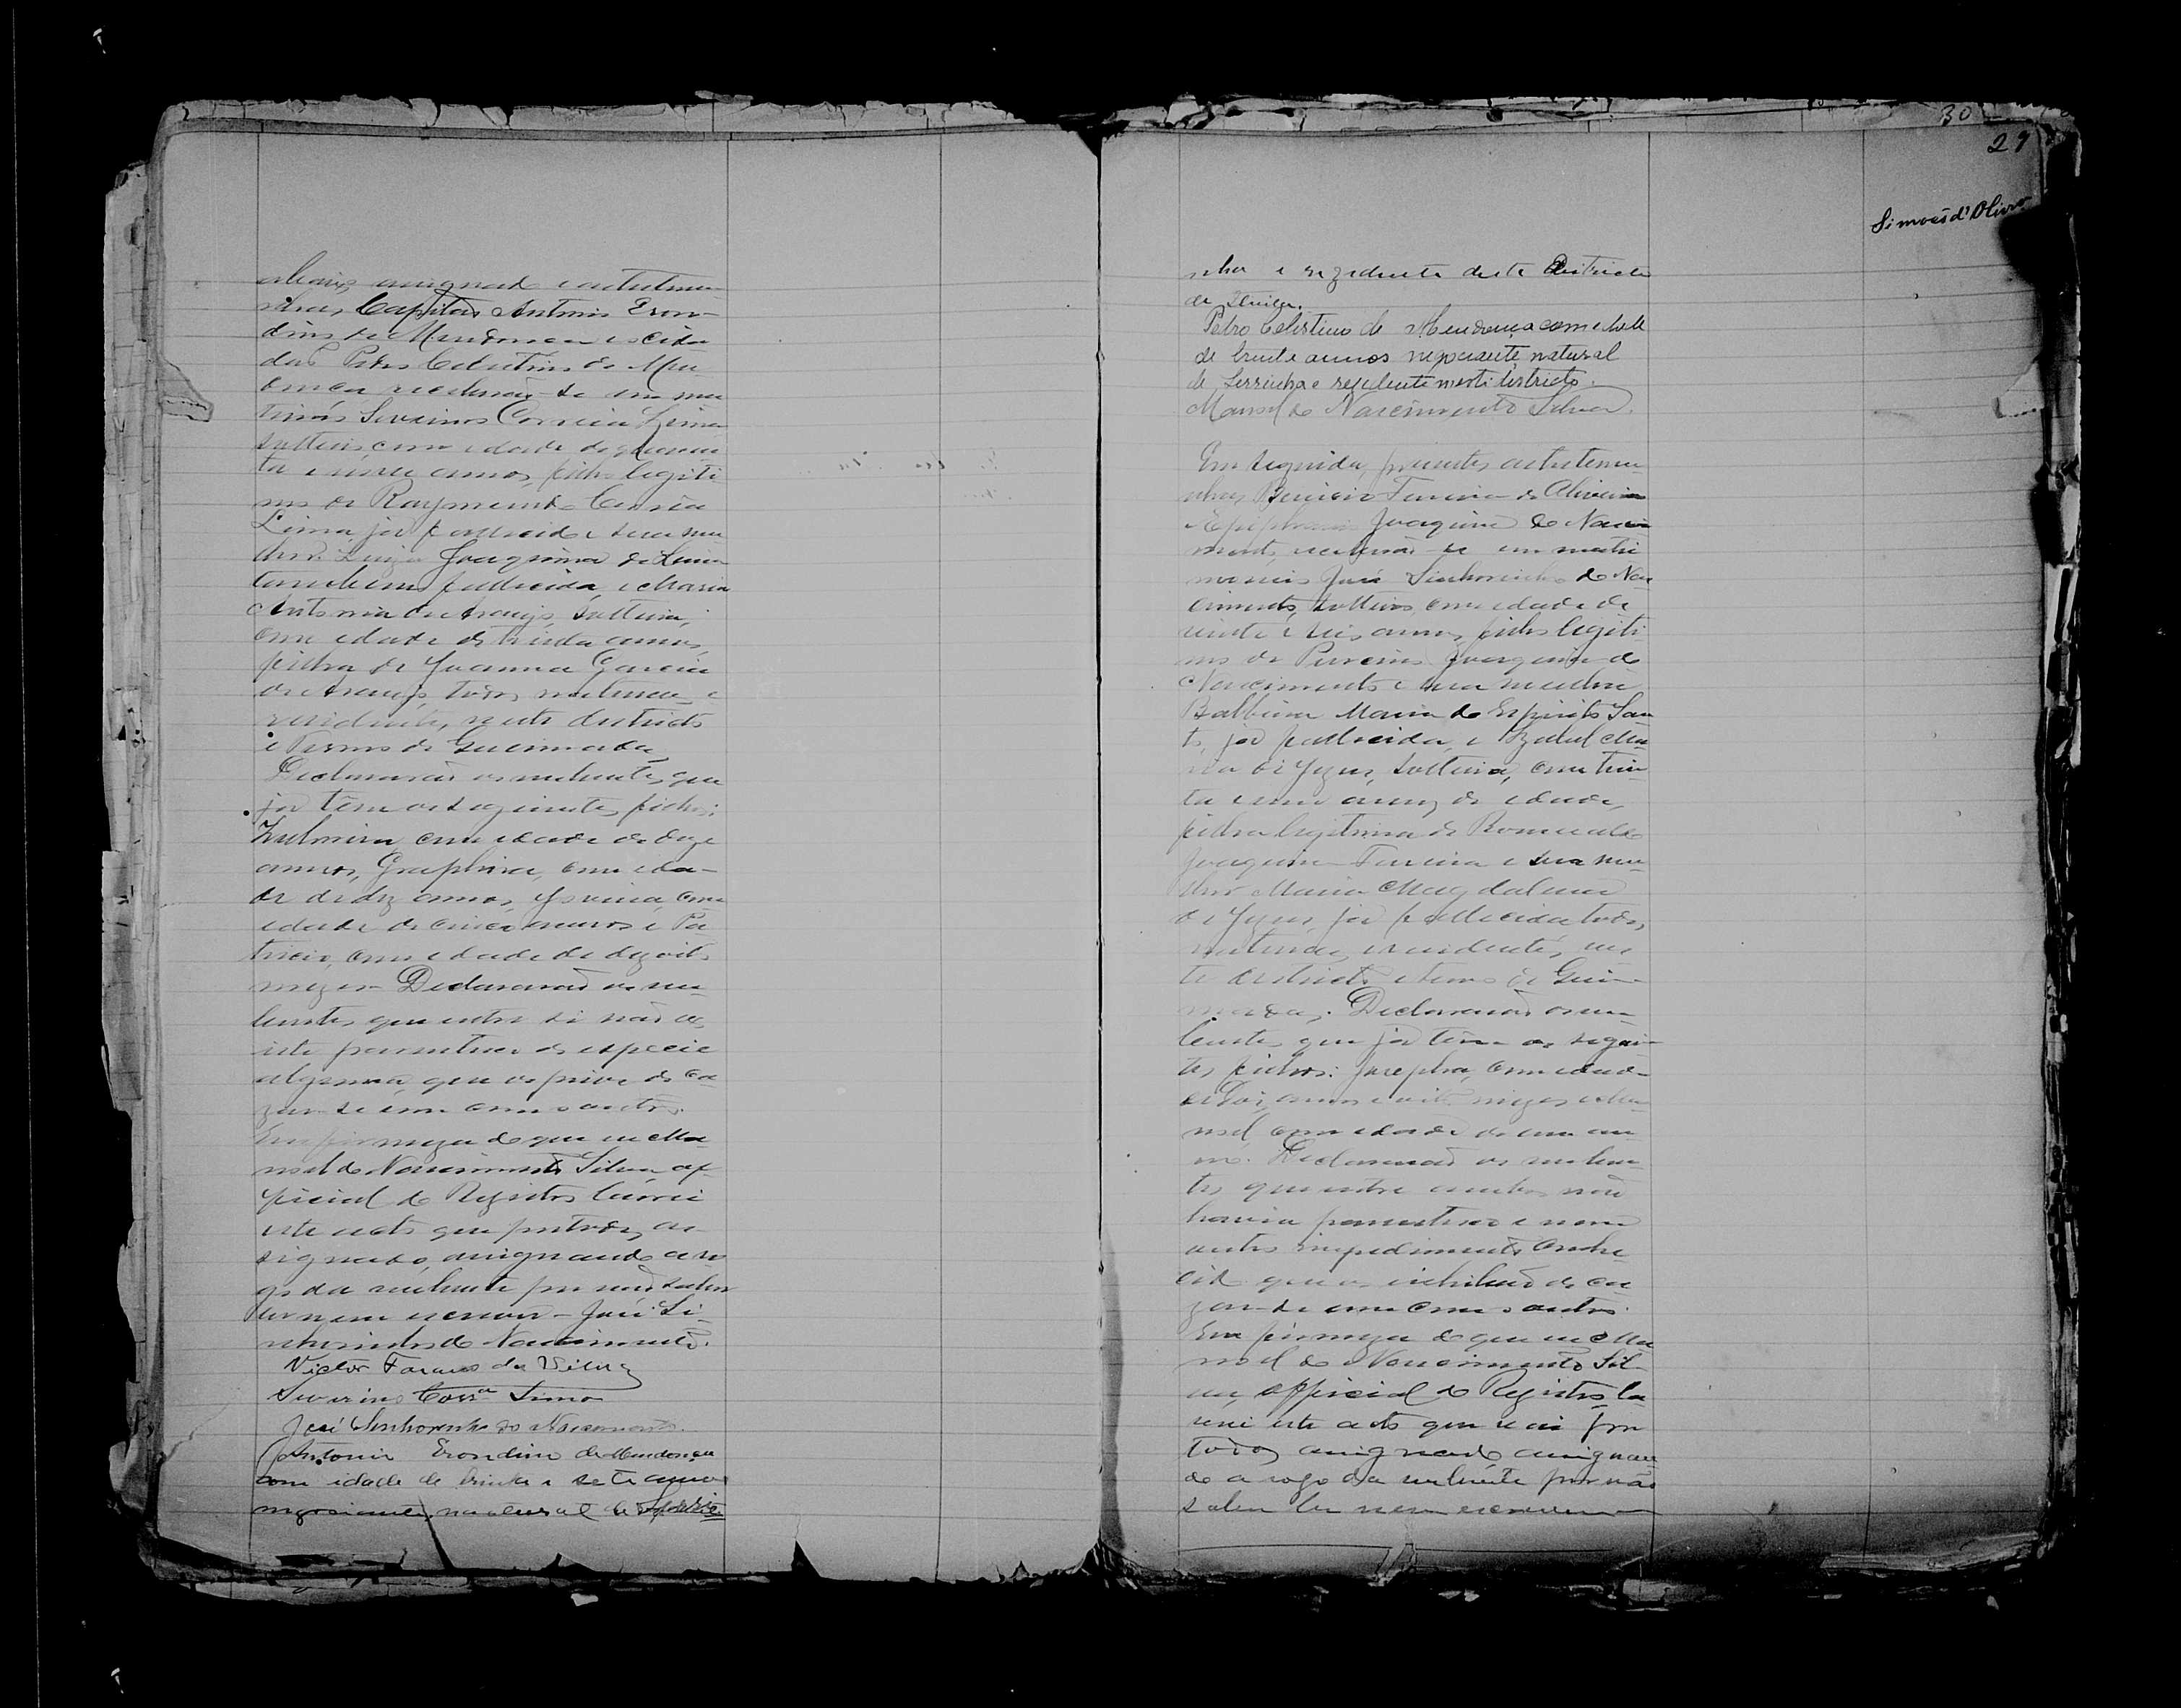 abaixo assignado e as testemu-
nhas, Capitão Antonio Eron-
dino de Mendonça e cida-
dão Pedro Celestino de Men-
donça, receberão-se em ma-
trimonio Severino Correia Lima
solteiro, com edade de quaren-
ta e annos, filho legiti-
mo de Raymundo Correia
Lima, já fallecido e sua mu-
lher Luiza Joaquina de Lima
tambem fallecida, e Maria
Antonia de Araujo, solteira,
com edade de trinta annos,
filha de Joanna Garcia
de Araujo, todos naturaes e
residentes, neste districto
e Termo de Queimadas.
Declararão os nubentes, que
já têm os seguintes filhos:
Zulmira, com edade de doze
annos, Graphira, com eda-
de de dez annos, com
edade de cinco annos e Pa-
tricio, com edade de dezoito
mezes. Declararão os nu-
bentes, que entre si não ex-
iste parentesco de especie
alguma, que os prive de ca-
zar-se um com o outro.
Em firmeza do que eu Ma-
noel do Nascimento Silva of-
ficial do Registro lavrei
este acto que por todos, as-
signado, assignando a ro-
go da nubente por não saber
ler nem escrever - José Si-
nhorinho do Nascimento.
Victor
Severino Corrª Lima
José Sinhorinho do Nascimento.
Antonio Erondino de Mendonça
com idade de trinta e sete annos
negociante, natural de
nha e rezidente deste Districto
de
Pedro Celestino de Mendonça com edade
de trinta annos negociante, natural
de Serrinha e rezidente nesti districto.
Manoel do Nascimento Silva.
Em seguida, presentes as testemu-
nhas, Benicio Ferreira de Oliveira
e Epiphanio Joaquim do Nasci-
mento, receberão-se em matri-
monio José Sinhorinho do Nas-
cimento, solteiro, com edade de
vinte e seis annos, filho legiti-
mo de Joaquim do
Nascimento e sua mulher
Balbina Maria do Espirito San-
to, já fallecida, e Izabel Ma-
ria de Jezus, solteira, com trin-
ta e um annos de edade,
filha legitima de Romualdo
Joaquim Ferreira e sua mu-
lher Maria Magdalena
de Jezus, já fallecida todos,
naturaes, e residentes, nes-
te districto e termo de Quei-
madas. Declararão os nu-
bentes, que já têm os seguin-
tes filhos: Josepha, com edade
de dois annos e oito mezes e Ma-
noel, com edade de um an-
no. Declararão os nuben-
tes que entre ambos não
havia parentesco e nem
outro impedimento conhe-
cido que os inhibão de ca-
zar-se um com o outro.
Em firmeza do que eu Ma-
noel do Nascimento Sil-
va, official do Registro la-
vrei este acto que vai por
todos assignado assignan-
do a rogo da nubente por não
saber ler nem escrever
30
29
Simões d'Olivra